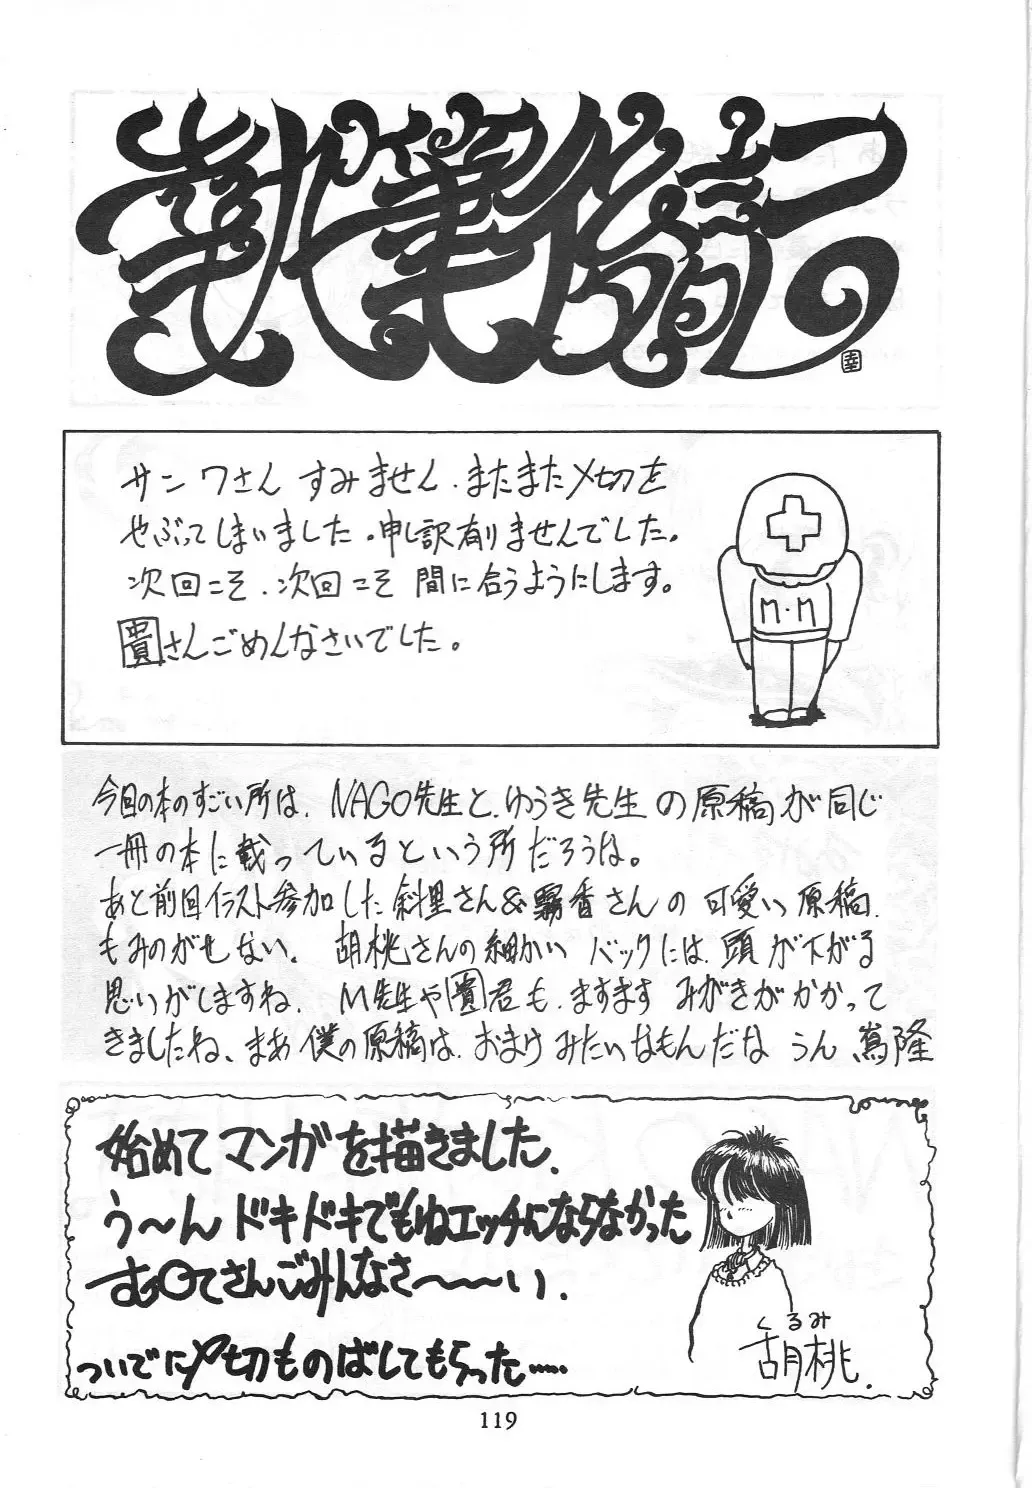 執筆後記
幸
サンワさん すみません、またまた〆切を
やぶってしまいました。申し訳有りませんでした。
次回こそ、次回こそ 間に合うようにします。
貴さんごめんなさいでした。
M・M
今回の本のすごい所は、NAGO先生と、ゆうき先生の原稿が同じ
一冊の本に載っているという所だろうな。
あと前回イラスト参加した斜里さん&霧香さんの可愛い原稿
もみのがせない。 胡桃さんの細かい バックには、頭が下がる
思いがしますね、 M先生や貴君も、ますます みがきがかかって
きましたね、まあ僕の原稿は、おまけみたいなもんだな うん 嵩隆
始めてマンガを描きました、
う〜ん ドキドキでもねエッチにならなかった
さんごみんなさ〜〜〜い、
ついでに〆切ものばしてもらった……
くるみ
胡桃.
119